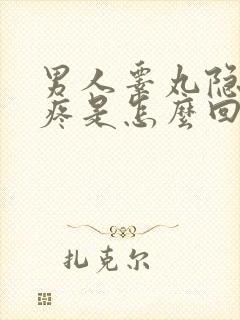 男人睾丸隐
疼是怎麼回
扎克尔